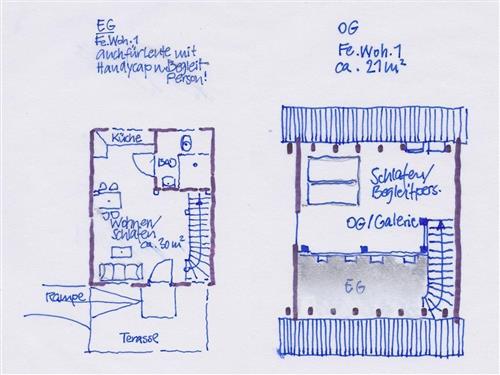 EG
Fe.Woh.1
auch für Leute mit
Handycap u. Begleit
Person!
OG
Fe.Woh.1
ca. 21 m²
Küche
BAD
Wohnen/
Schlafen
ca. 30 m²
Rampe
Terasse
Schlafen/
Begleitpers.
OG/Galerie
EG